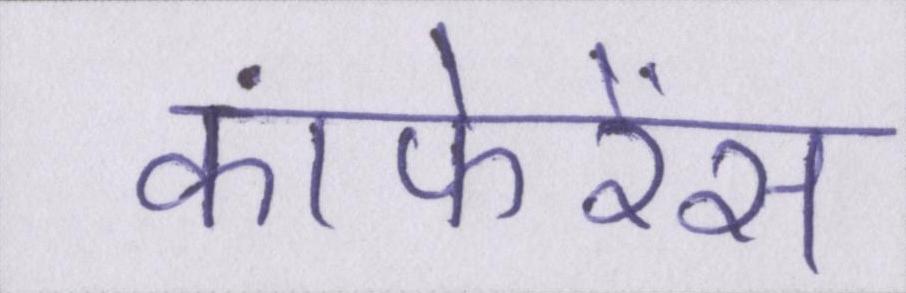 कांफेरेंस